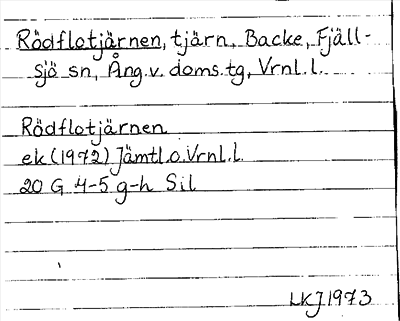 Rödflotjärnen, tjärn, Backe, Fjäll-
sjö sn, Ång.v. doms.tg, Vrnl.l.
Rödflotjärnen
ek (1972) Jämtl.o.Vrnl.l.
20 G 4-5 g-h Sil
LKJ 1973